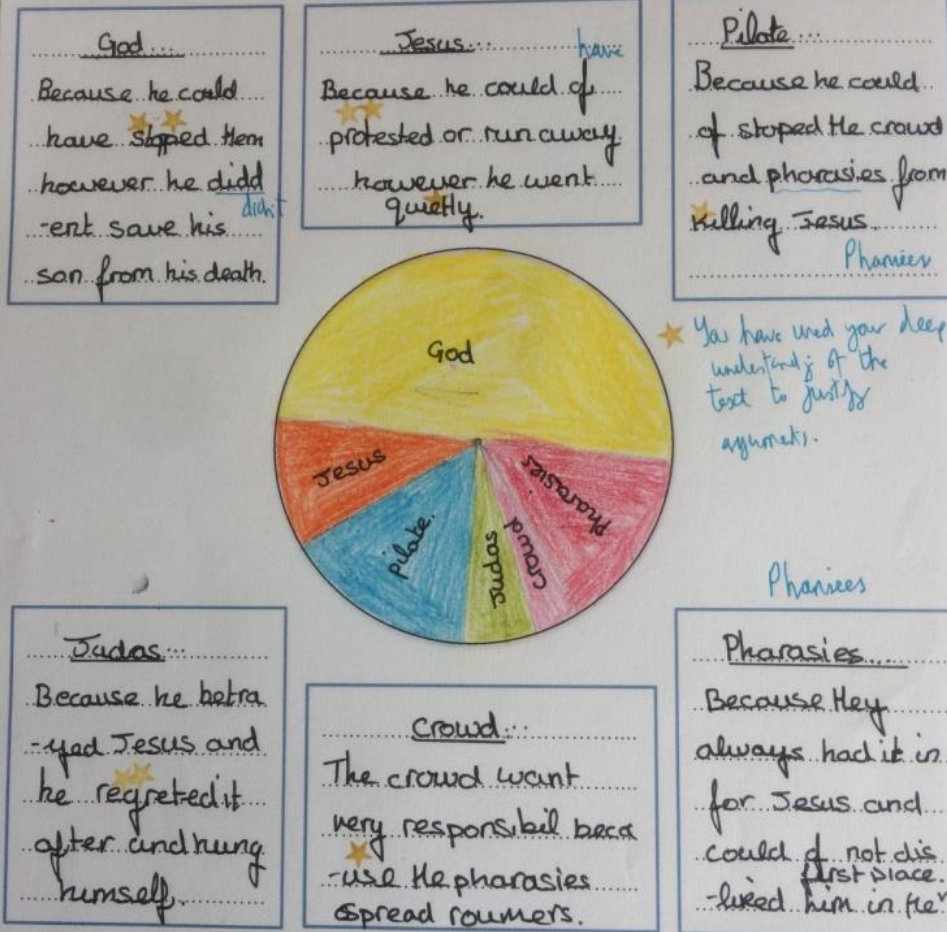 God...
Because he could
have stoped them
however he didd
didn't
-ent save his
son from his death.
Jesus...
have
Because he could of
protested or run away
however he went
quietly.
Pilate...
Because he could
of stoped the crowd
and pharasies from
killing Jesus.
Pharisees
God
Jesus
Pilate.
Judas
crowd
Pharasies
You have used your deep
understanding of the
text to justify
arguments.
Judas...
Because he betra
-yed Jesus and
he regreted it
after and hung
himself.
Crowd...
The crowd want
very responsibil beca
-use the pharasies
spread roumers.
Pharisees
Pharasies...
Because they
always had it in
for Jesus and
could of not dis
first place.
-liked him in the